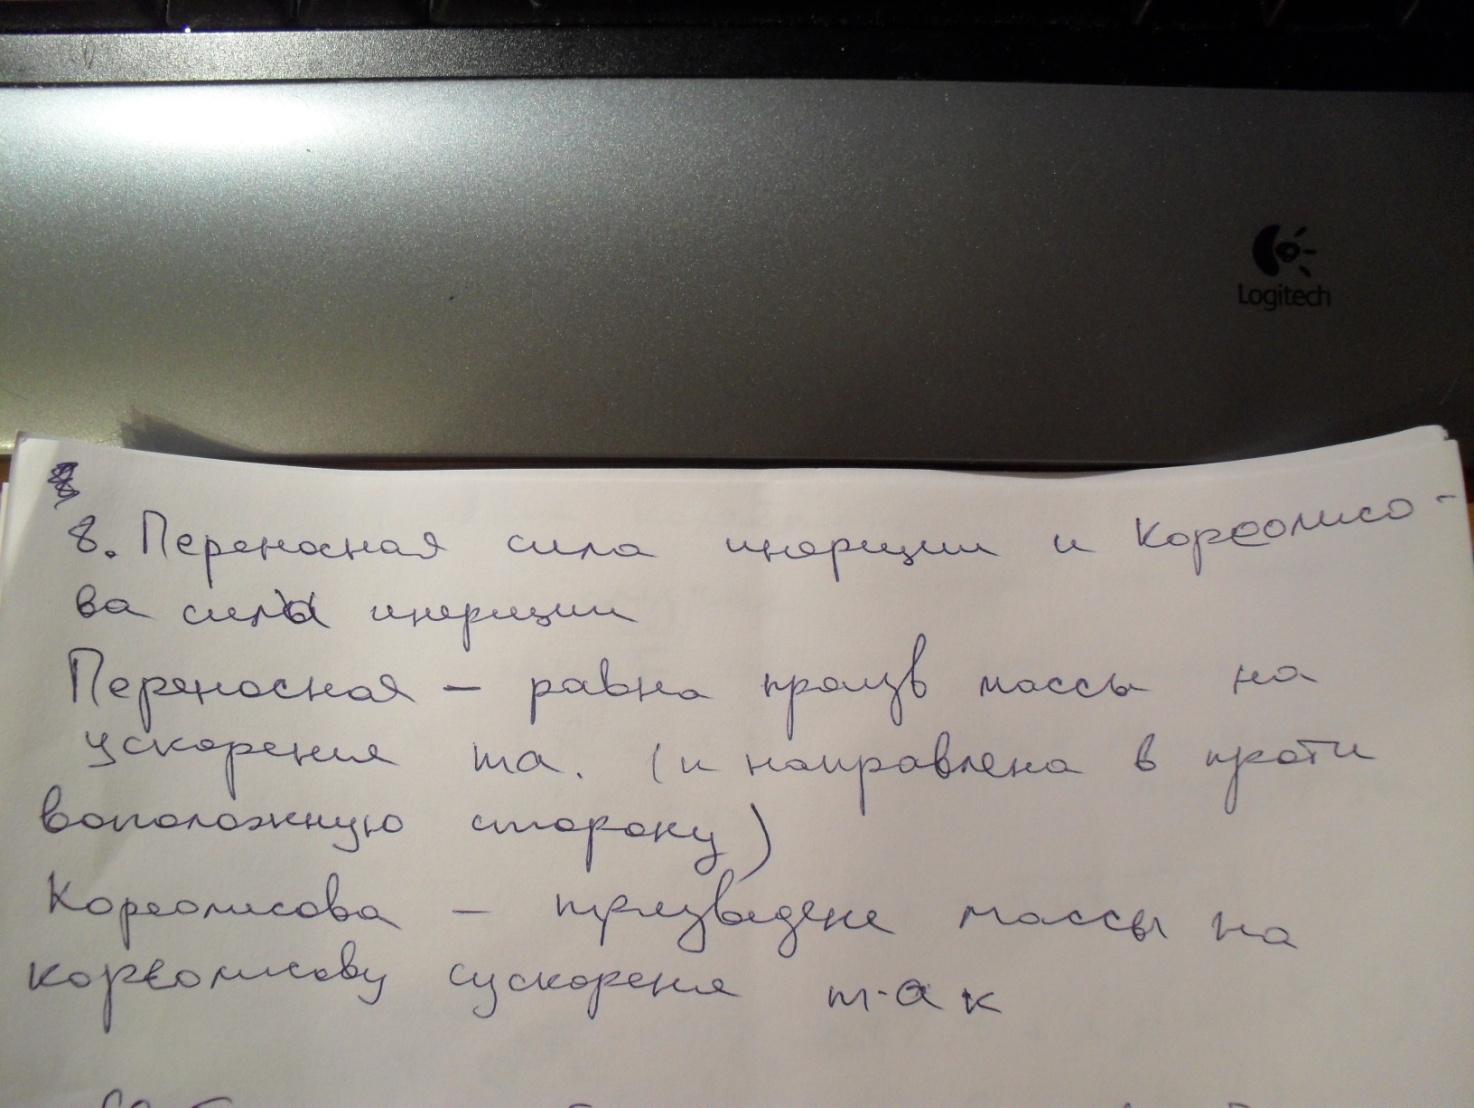 Logitech
8. Переносная сила инерции и Кореолисо-
ва силы инерции
Переносная – равна произв массы на
ускорения ma. (и направлена в проти
воположную сторону)
Кореолисова – произведене массы на
кореолисову сускореня m·aк